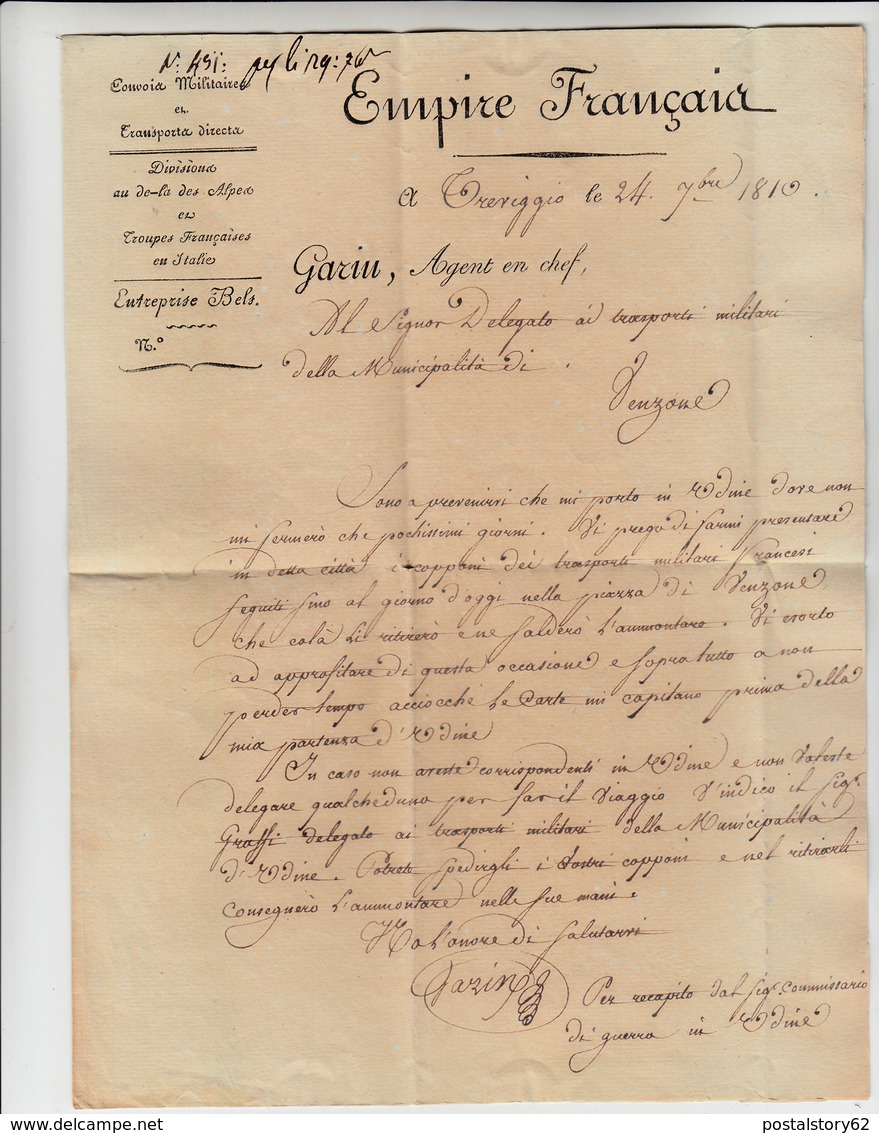 N.° 431:
Convois Militaires
et
Transports directs
Divisions
au de-là des Alpes
et
Troupes Françaises
en Italie
Entreprise Bels.
N.°
Empire Français
A Treviggio le 24. 7bre 1810.
Garin, Agent en chef,
Al Signor Delegato ai trasporti militari
della Municipalità di.
Venzone
Sono a prevenirvi che mi porto in Udine dove non
mi fermerò che pochissimi giorni. Vi prego di farmi presentare
in detta città i copponi dei trasporti militari Francesi
seguiti sino al giorno d'oggi nella piazza di Venzone
che colà li ritirerò e ne salderò l'ammontare. Vi esorto
ad approfitare di questa occasione e sopra tutto a non
perder tempo acciocchè le Carte mi capitano prima della
mia partenza d'Udine
In caso non aveste corrispondenti in Udine e non voleste
delegare qualcheduno per far il viaggio v'indico il Sigr.
Grassi delegato ai trasporti militari della Municipalità
d'Udine. Potrete spedirgli i vostri copponi e nel ritirarli
consegnerò l'ammontare nelle sue mani.
Ho l'onore di salutarvi
Garin
Per recapito dal Sigr. Commissario
di guerra in Udine
postalstory62